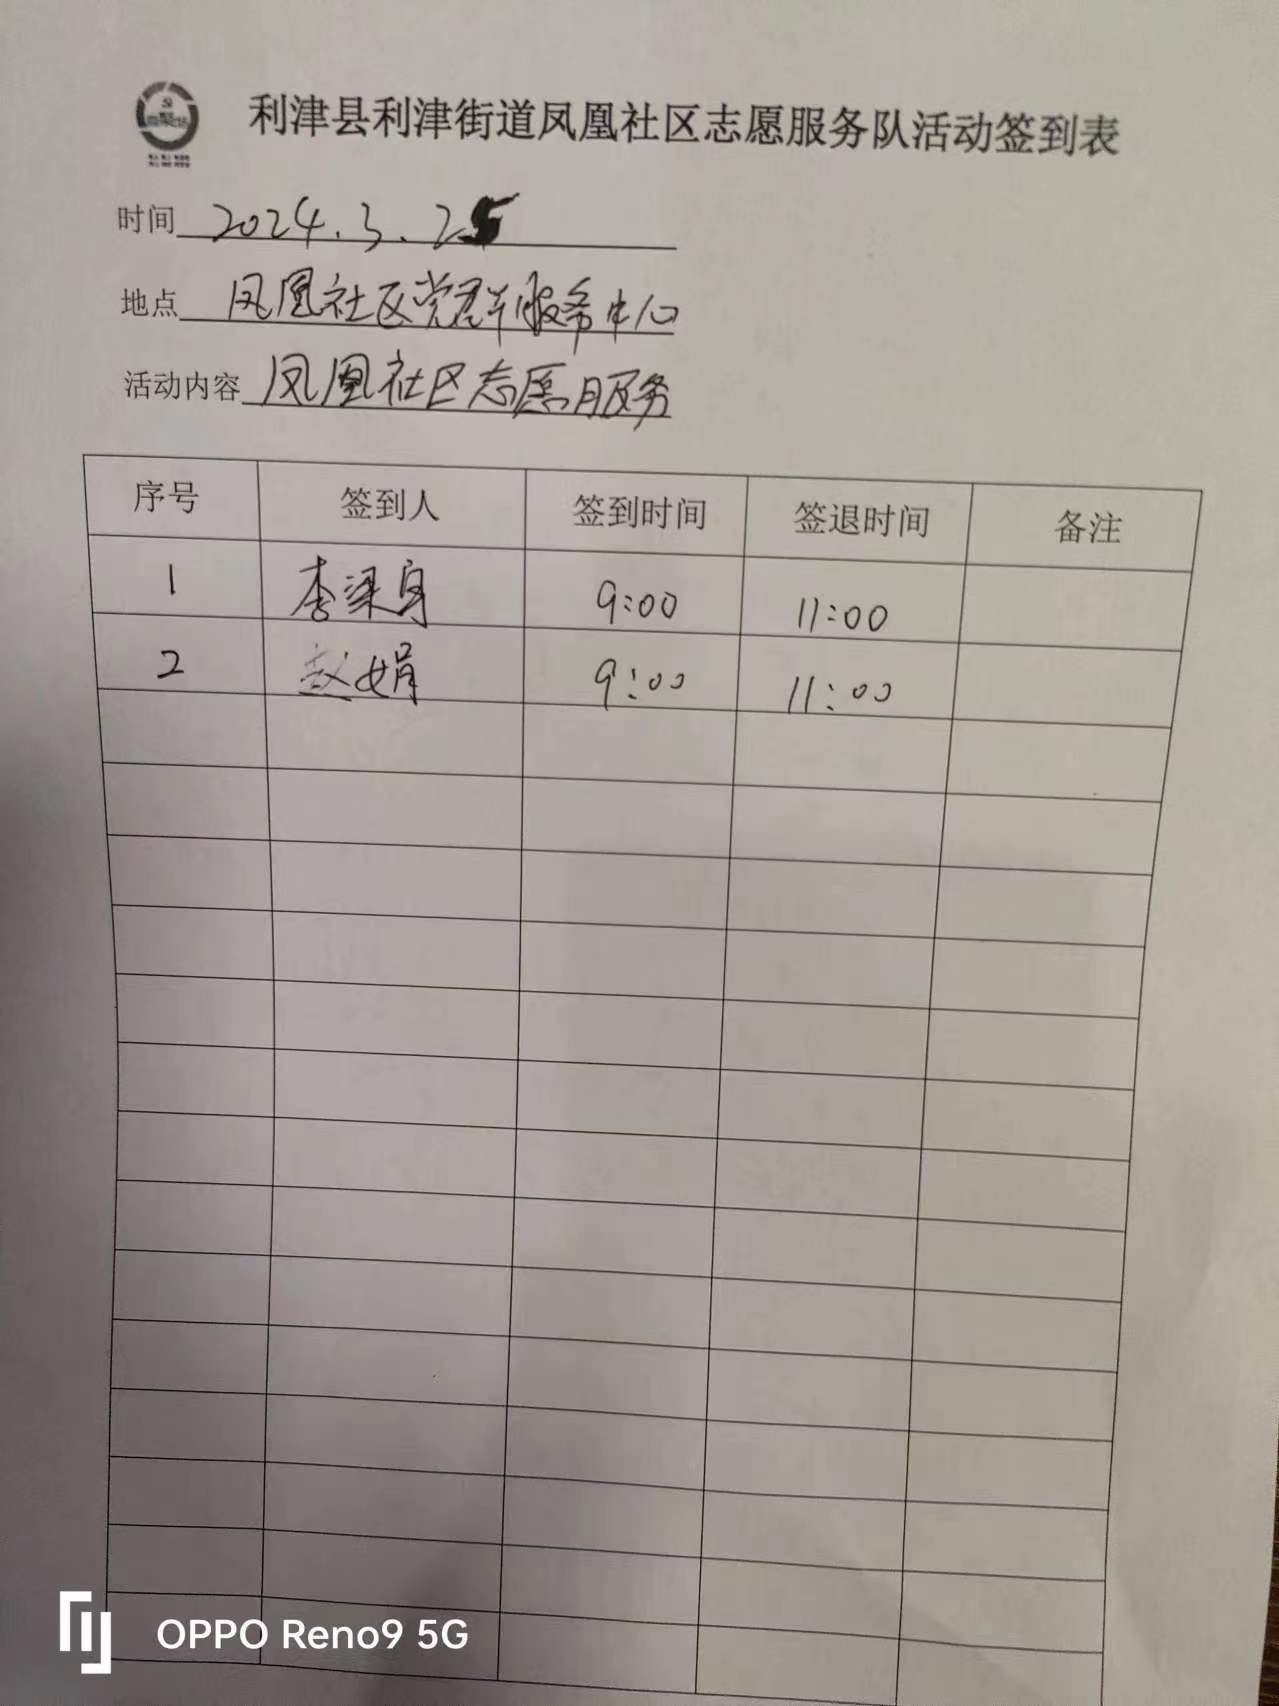 利津县利津街道凤凰社区志愿服务队活动签到表
时间 2024.3.25
地点 凤凰社区党群服务中心
活动内容 凤凰社区志愿服务
序号 签到人 签到时间 签退时间 备注
1 李梁 9:00 11:00
2 赵娟 9:00 11:00
OPPO Reno9 5G